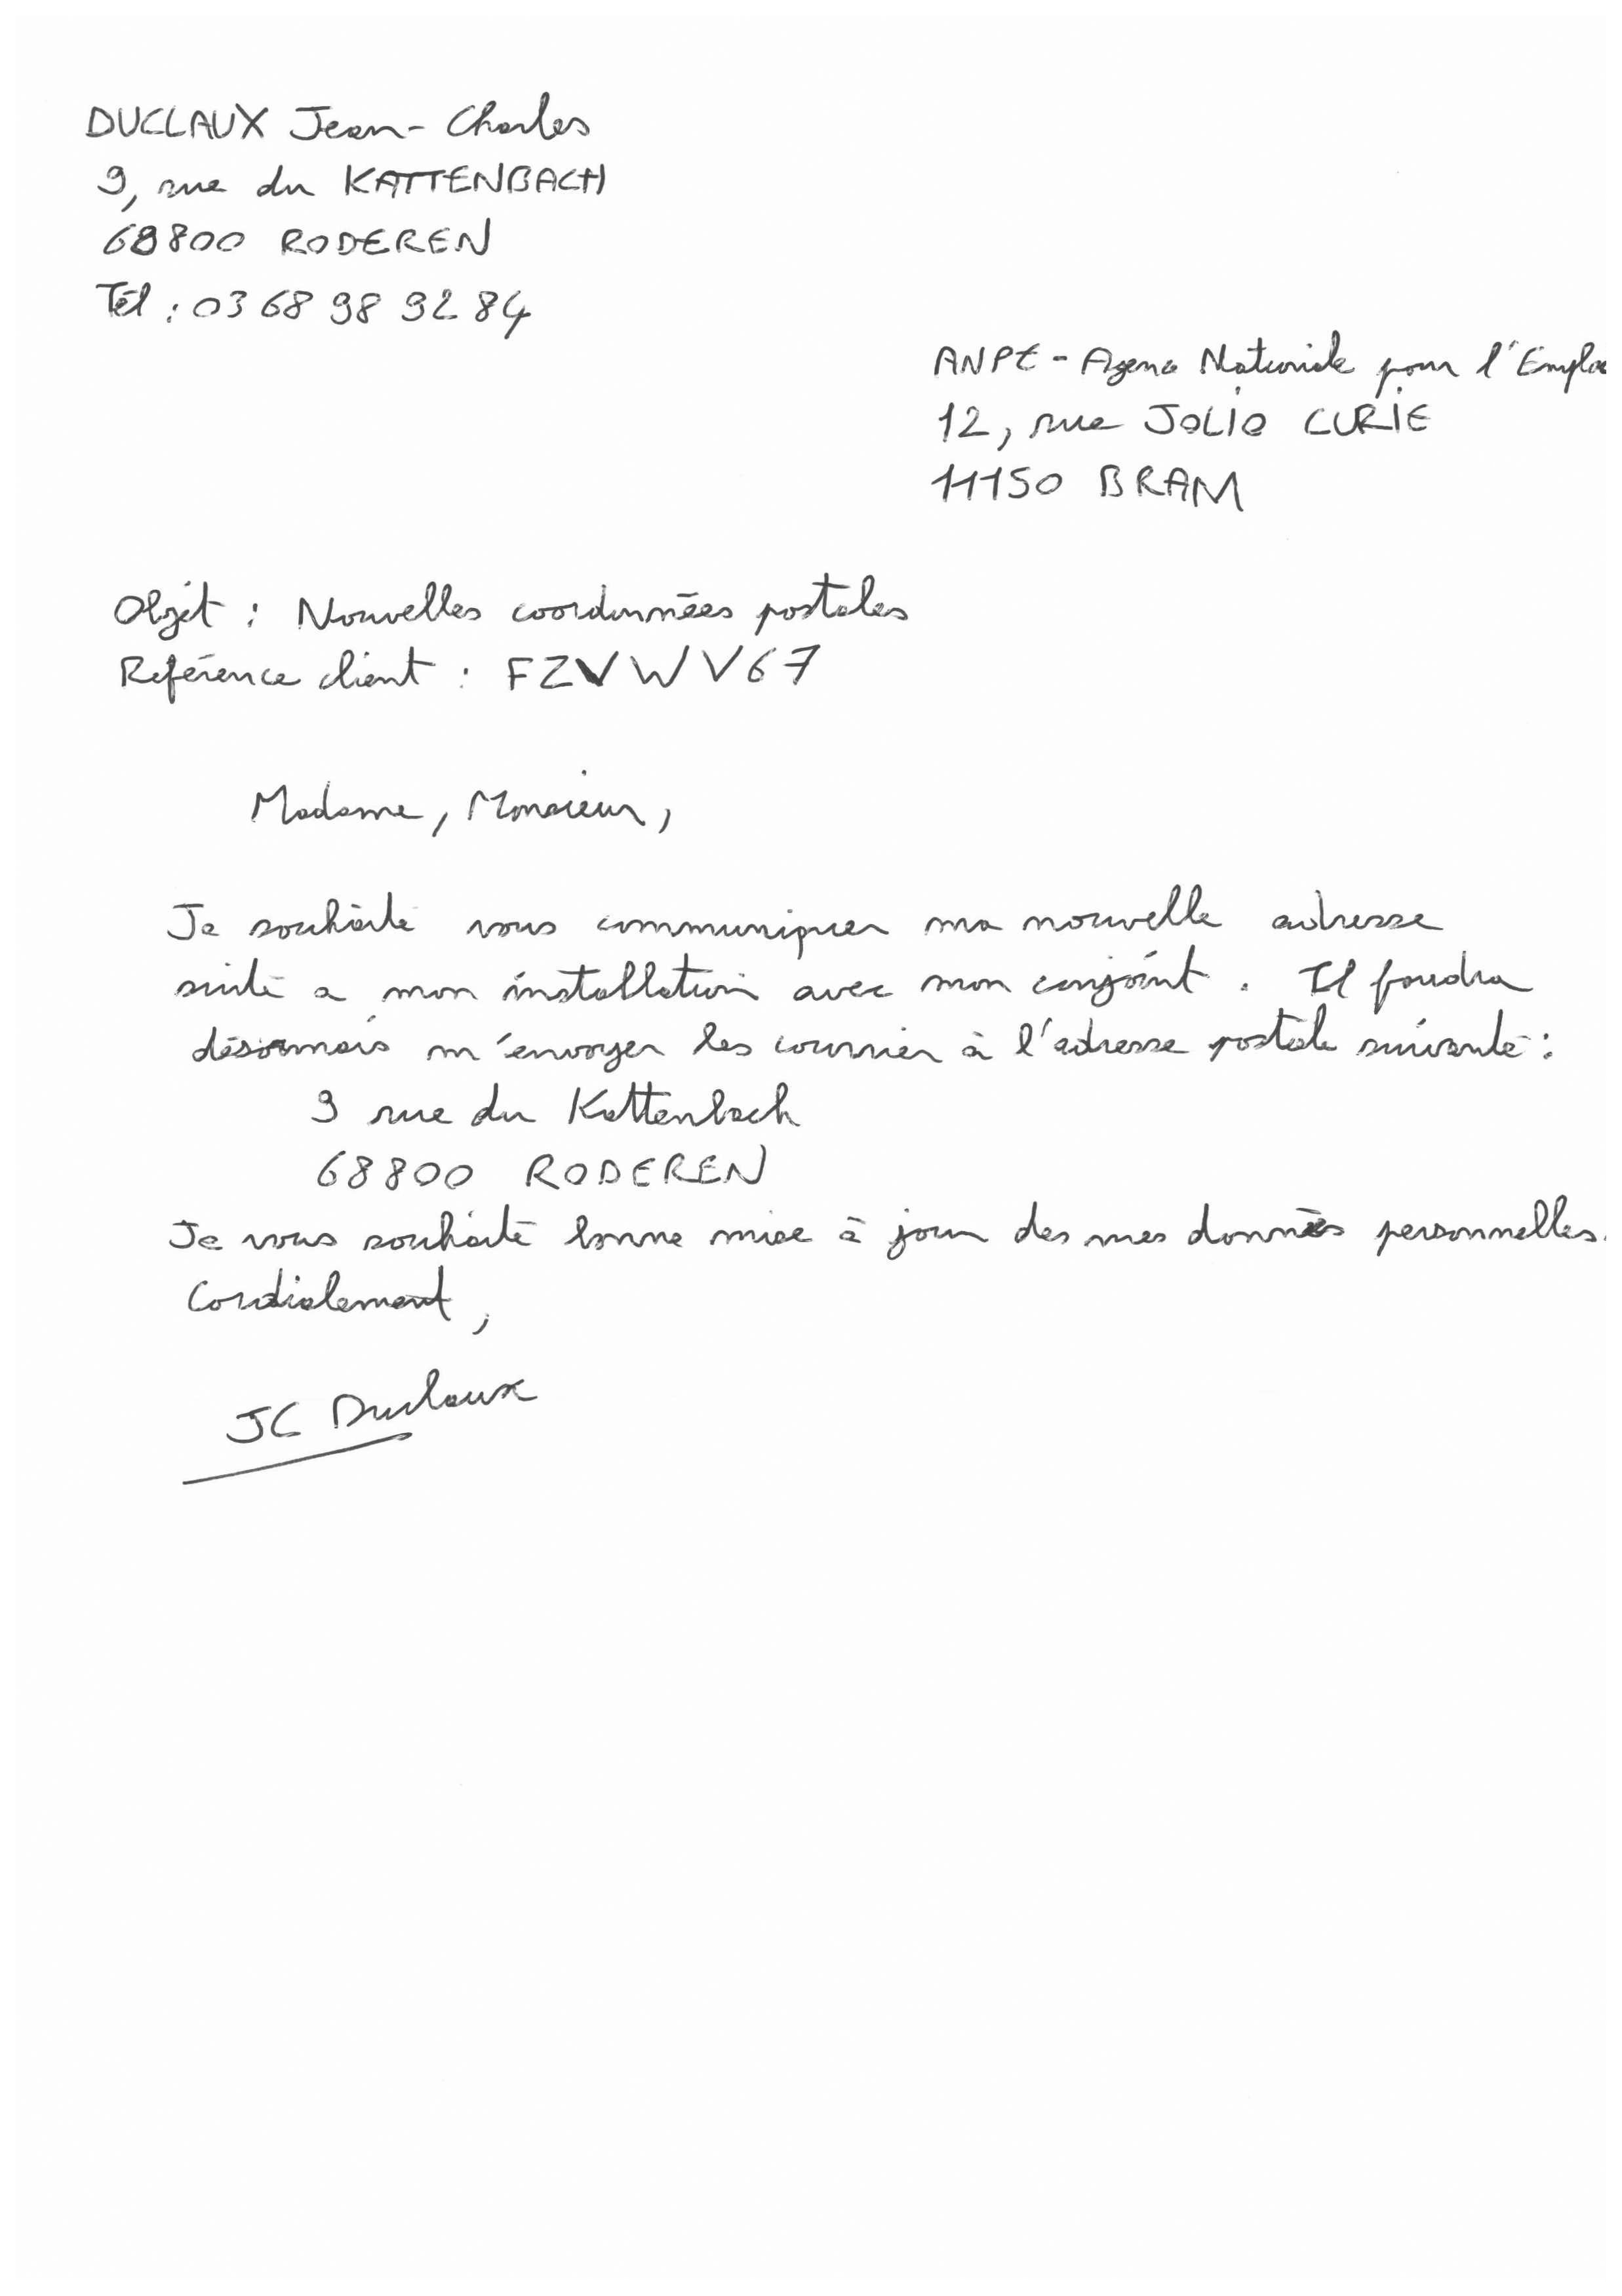 DUCLAUX Jean-Charles
9, rue du KATTENBACH
68800 RODEREN
Tél : 03 68 98 92 84
ANPE - Agence Nationale pour l'Emploi
12, rue JOLIO CURIE
11150 BRAM
Objet : Nouvelles coordonnées postales
Référence client : FZVWV67
Madame, Monsieur,
Je souhaite vous communiquer ma nouvelle adresse
suite a mon installation avec mon conjoint. Il faudra
désormais m'envoyer les courrier à l'adresse postale suivante :
9 rue du Kattenbach
68800 RODEREN
Je vous souhaite bonne mise à jour des mes données personnelles.
Cordialement,
JC Duclaux